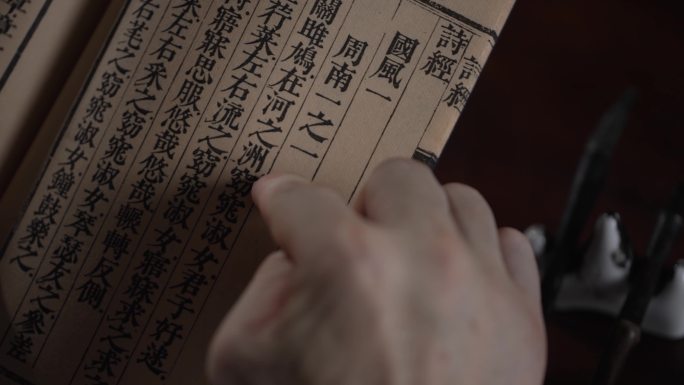 詩經
詩經
國風一
周南一之一
關雎鳩在河之洲窈窕淑女君子好逑
荇菜左右流之窈窕淑女寤寐求之求
寤寐思服悠哉悠哉輾轉反側
菜左右采之窈窕淑女琴瑟友之參差
左右芼之窈窕淑女鐘鼓樂之